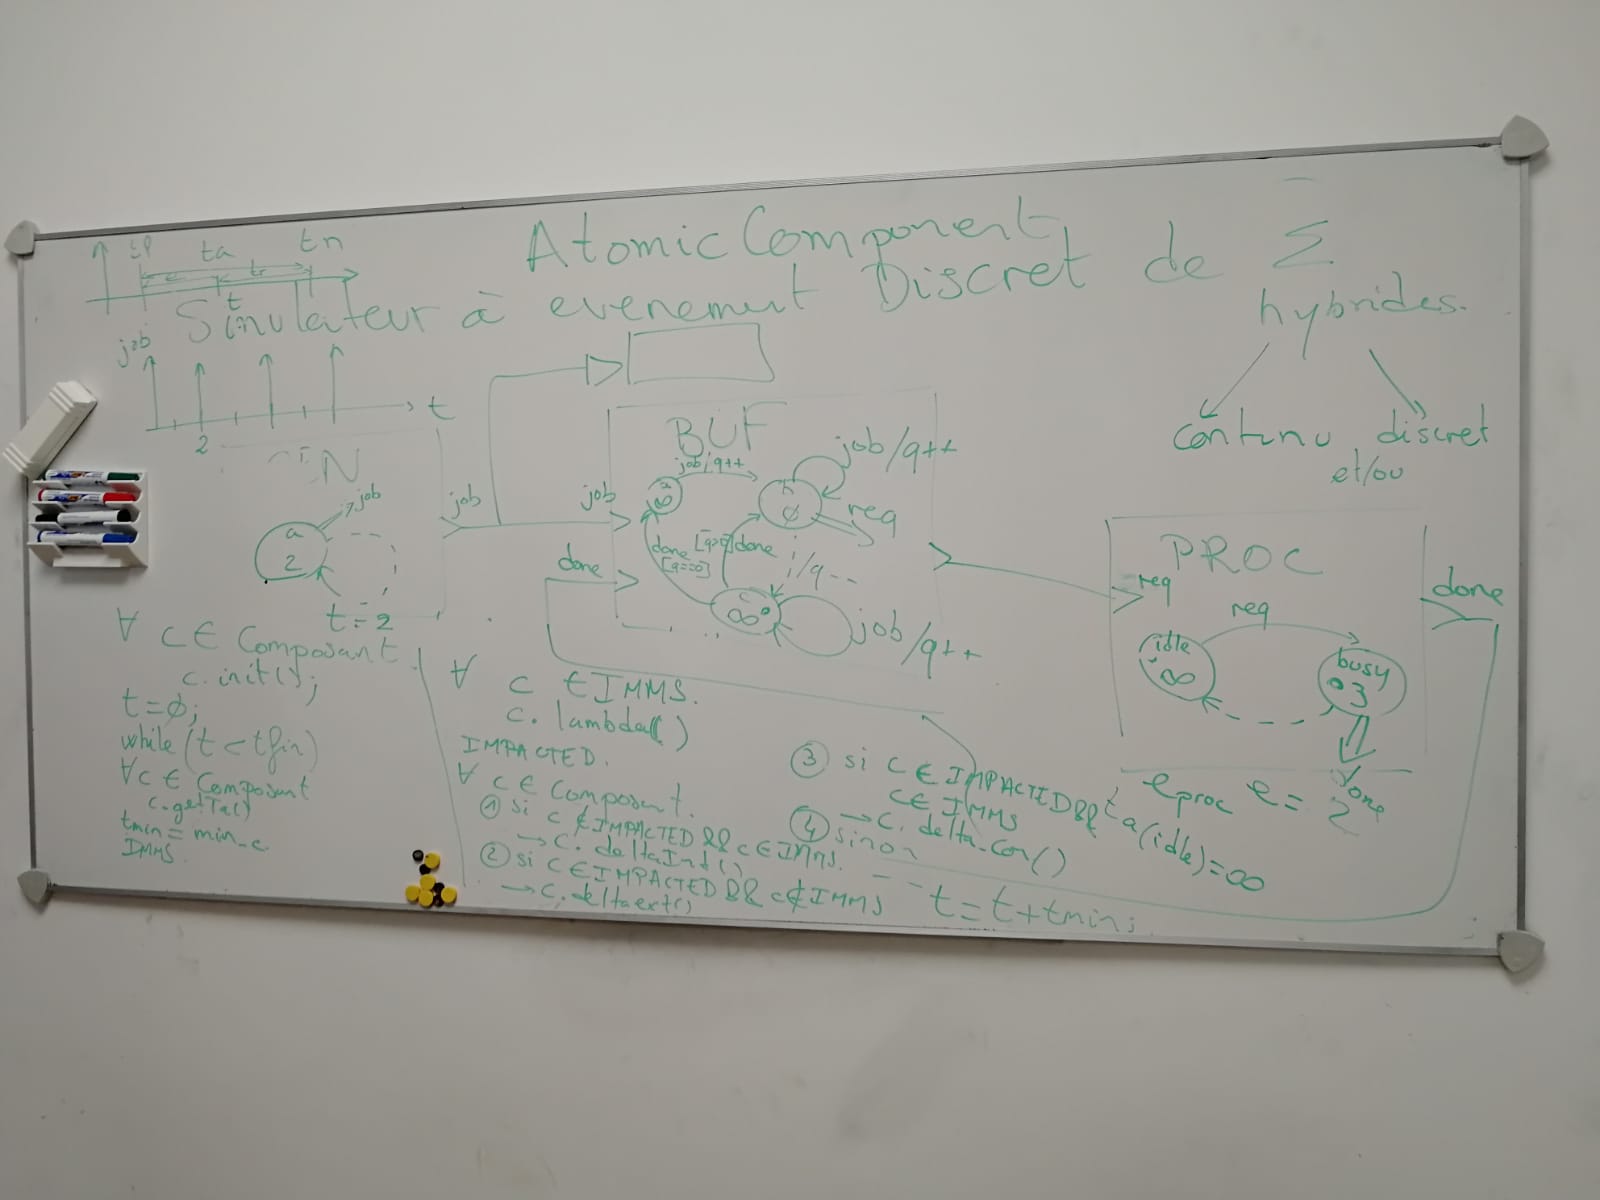 Atomic Component
Simulateur à evenement Discret de Σ
hybrides.
continu discret
et/ou
ta tn
tr
t
job
t
2
job
a
2
t=2
job
BUF
job
done
job/q++
∞
job/q++
b
∅
req
done
[q==0]
[q>0] done
i/q--
c
∞
job/q++
PROC
req
req
idle
∞
busy
3
done
done
eproc e = 2
ta(idle)=∞
∀ c ∈ Composant
c.init();
t=∅;
while (t < tfin)
∀c ∈ Composant
c.getTa()
tmin = min_c
IMMS
∀ c ∈ IMMS.
c. lambda()
IMPACTED.
∀ c ∈ Composant.
① si c ∉ IMPACTED && c ∈ IMMS.
→ c. deltaInt()
② si c ∈ IMPACTED && c ∉ IMMS
→ c. deltaext()
③ si c ∈ IMPACTED &&
c ∈ IMMS
→ c. delta_con()
④ sinon
t = t + tmin;